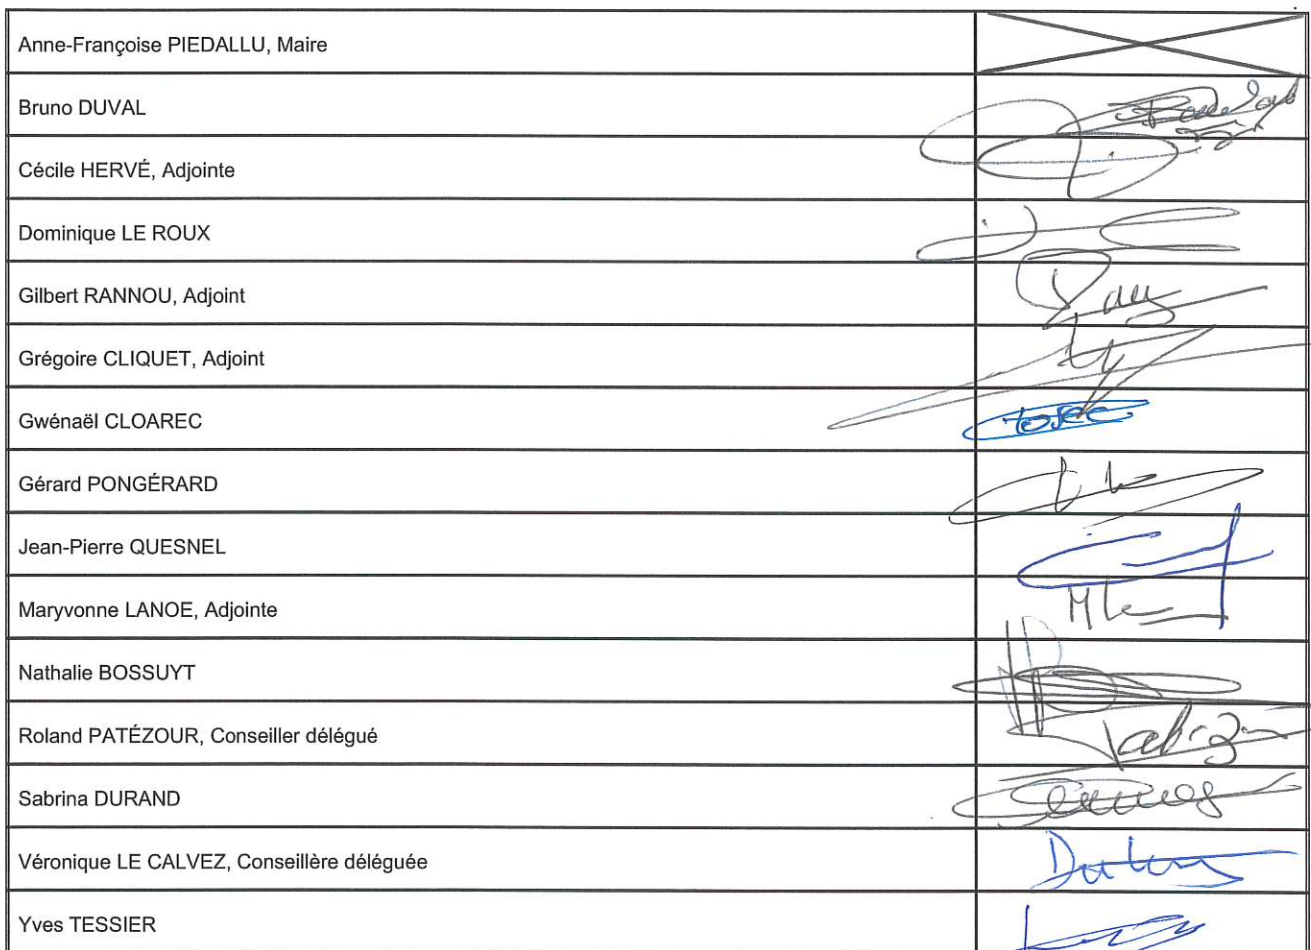 Anne-Françoise PIEDALLU, Maire
Bruno DUVAL
Cécile HERVÉ, Adjointe
Dominique LE ROUX
Gilbert RANNOU, Adjoint
Grégoire CLIQUET, Adjoint
Gwénaël CLOAREC
Gérard PONGÉRARD
Jean-Pierre QUESNEL
Maryvonne LANOE, Adjointe
Nathalie BOSSUYT
Roland PATÉZOUR, Conseiller délégué
Sabrina DURAND
Véronique LE CALVEZ, Conseillère déléguée
Yves TESSIER